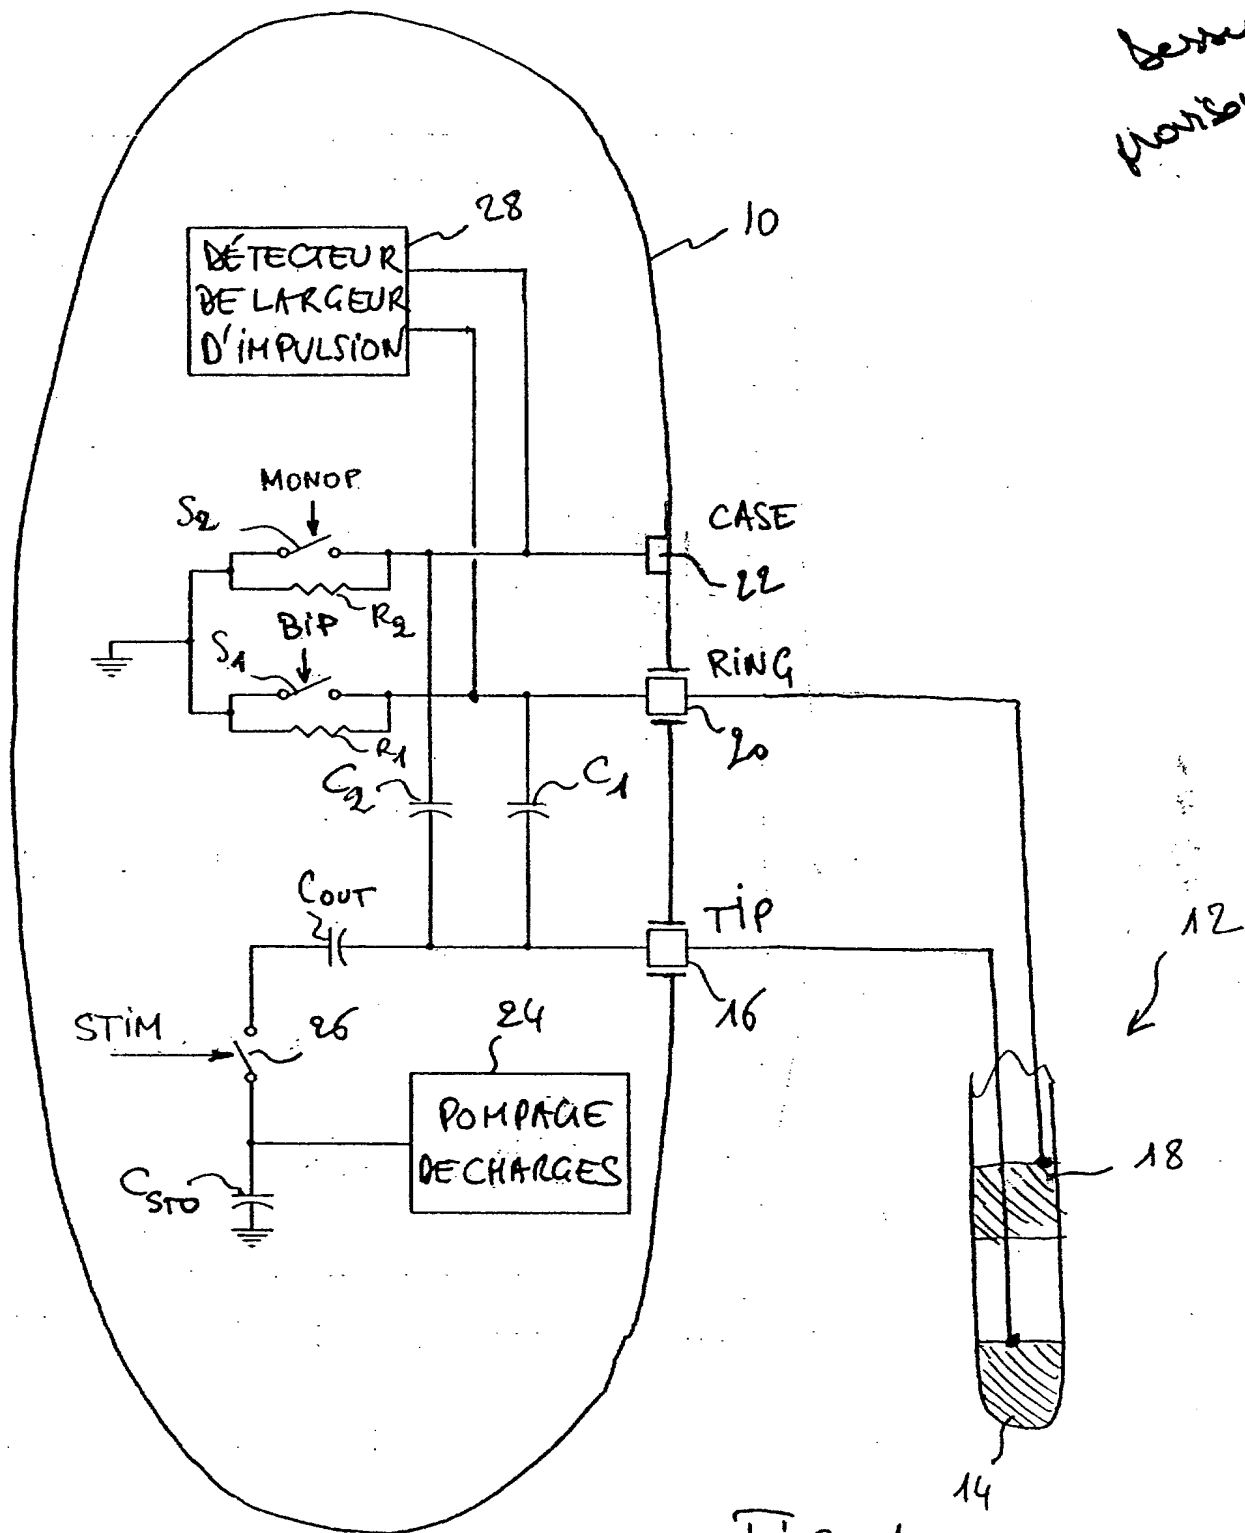 28
10
DÉTECTEUR
DE LARGEUR
D'IMPULSION
MONOP
S2
CASE
22
R2
BIP
S1
RING
20
R1
C2
C1
COUT
TIP
12
16
STIM
26
24
POMPAGE
DE CHARGES
18
CSTO
14